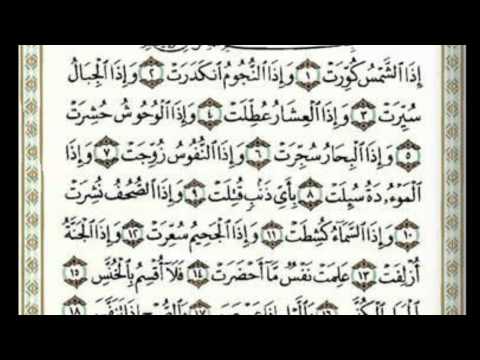 إِذَا ٱلشَّمْسُ كُوِّرَتْ ١ وَإِذَا ٱلنُّجُومُ ٱنكَدَرَتْ ٢ وَإِذَا ٱلْجِبَالُ
سُيِّرَتْ ٣ وَإِذَا ٱلْعِشَارُ عُطِّلَتْ ٤ وَإِذَا ٱلْوُحُوشُ حُشِرَتْ
٥ وَإِذَا ٱلْبِحَارُ سُجِّرَتْ ٦ وَإِذَا ٱلنُّفُوسُ زُوِّجَتْ ٧ وَإِذَا
ٱلْمَوْءُۥدَةُ سُئِلَتْ ٨ بِأَيِّ ذَنۢبٍ قُتِلَتْ ٩ وَإِذَا ٱلصُّحُفُ نُشِرَتْ
١٠ وَإِذَا ٱلسَّمَآءُ كُشِطَتْ ١١ وَإِذَا ٱلْجَحِيمُ سُعِّرَتْ ١٢ وَإِذَا ٱلْجَنَّةُ
أُزْلِفَتْ ١٣ عَلِمَتْ نَفْسٌ مَّآ أَحْضَرَتْ ١٤ فَلَآ أُقْسِمُ بِٱلْخُنَّسِ ١٥
١٦ ١٧ ١٨